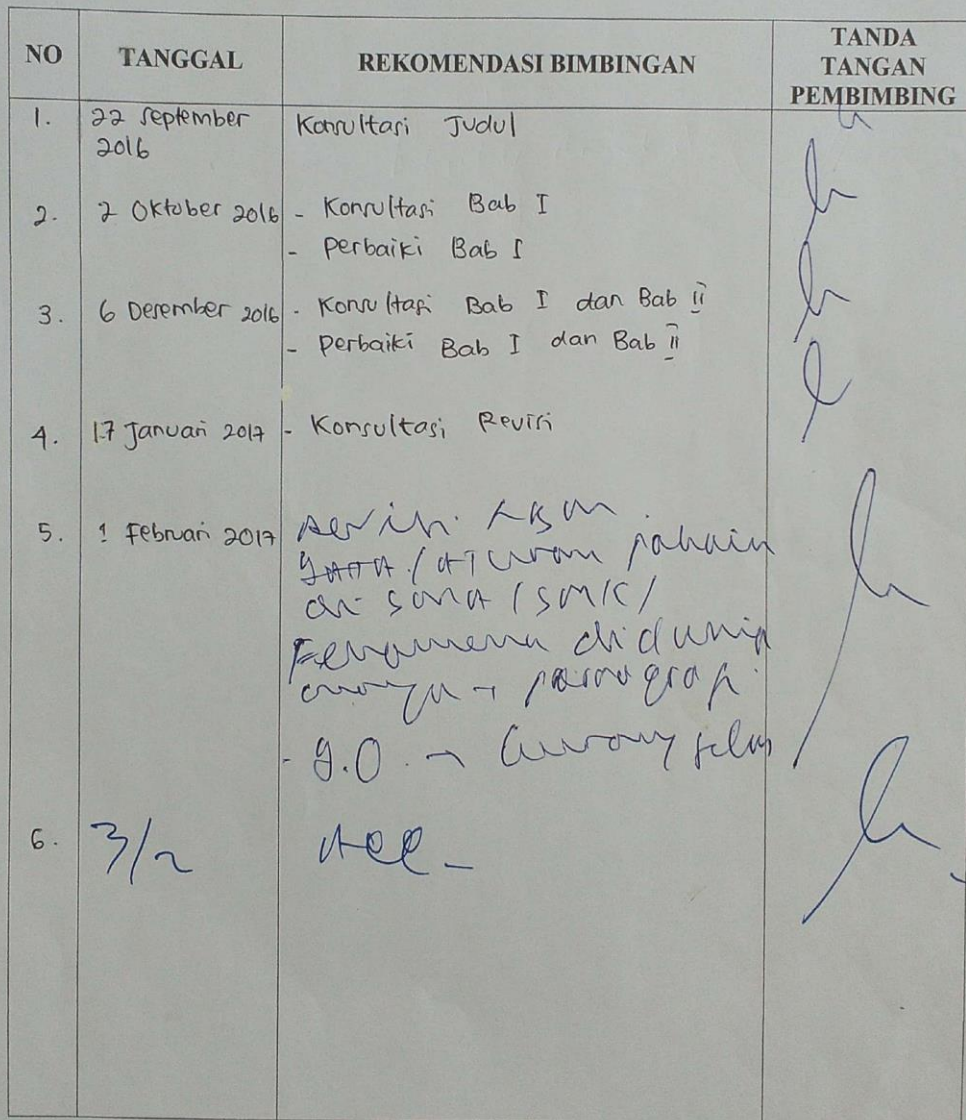 NO TANGGAL REKOMENDASI BIMBINGAN TANDA TANGAN PEMBIMBING
1. 22 September 2016 Konsultasi Judul
2. 2 Oktober 2016 - Konsultasi Bab I
- Perbaiki Bab I
3. 6 Desember 2016 - Konsultasi Bab I dan Bab II
- Perbaiki Bab I dan Bab II
4. 17 Januari 2017 - Konsultasi Revisi
5. 1 Februari 2017
/ aturan
di sana / SMK /
Fenomena didunia
maya → pornografi.
- → kurang jelas
6. 3/2 Acc -